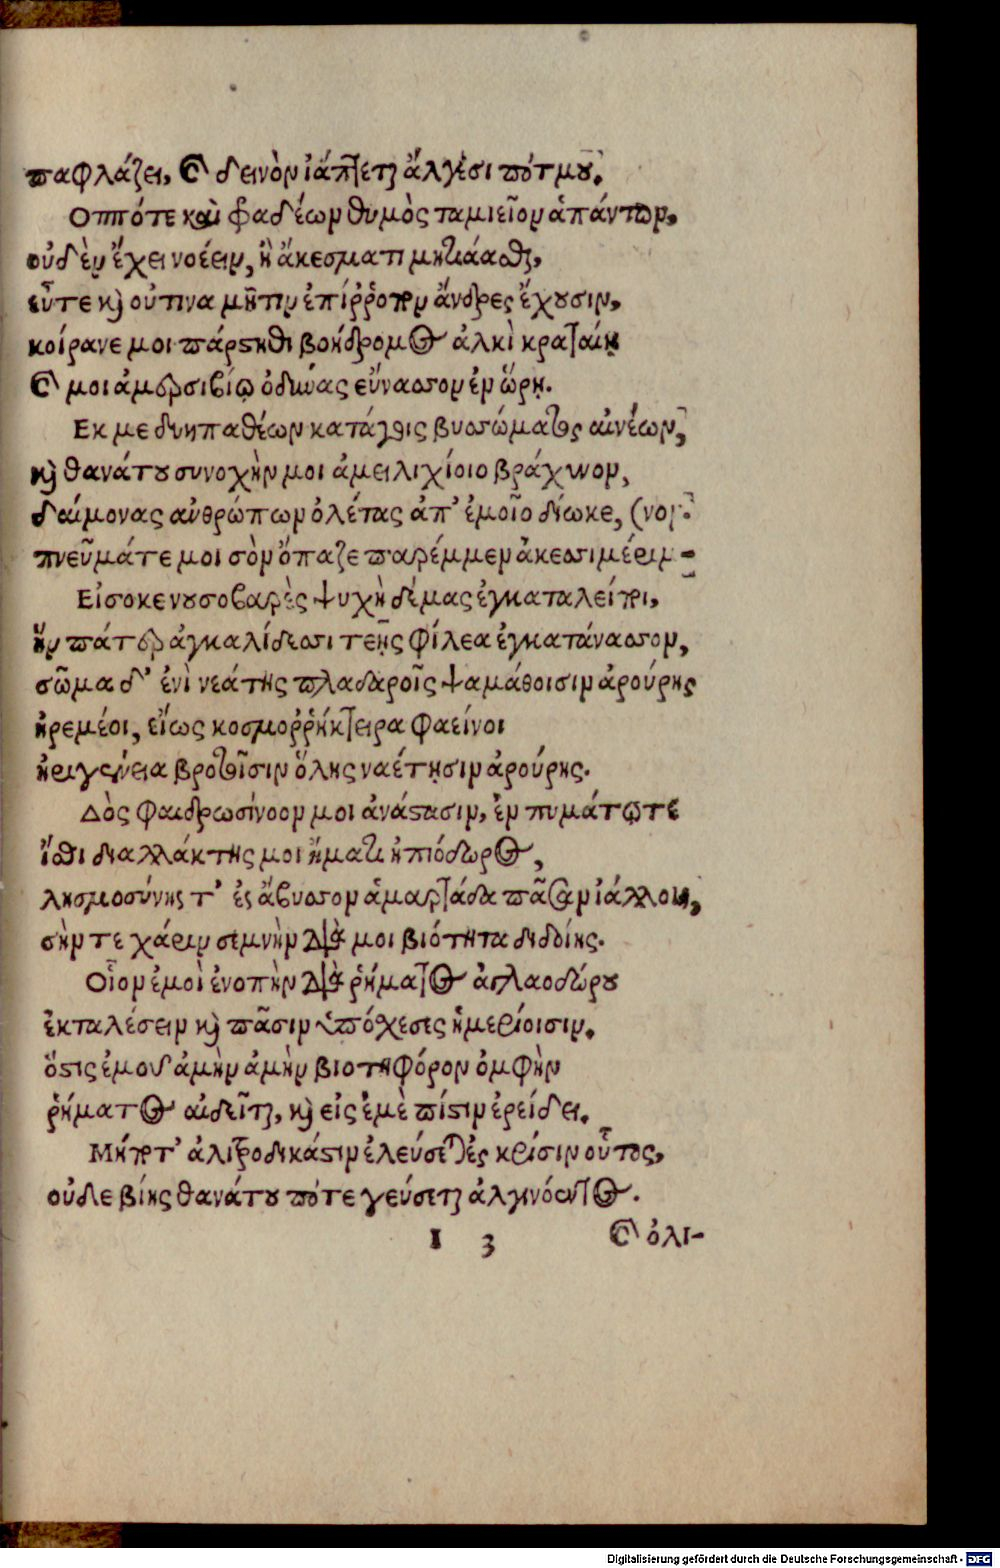 παφλάζει, καὶ δεινὸν ἰάπτεται ἄλγεσι πότμου.
Οππότε καὶ φραδέων θυμὸς ταμιεῖον ἁπάντων,
οὐδὲν ἔχει νοέειν, ἢ ἀκέσματι μητιάασθαι,
εὖτε καὶ οὔτινα μῆτιν ἐπίῤῥοπον ἄνδρες ἔχουσιν,
κοίρανε μοι πάρστηθι βοηδρομος ἀλκὶ κραταίῃ
καὶ μοι ἀμερσιβίῳ ὀδύνας εὔνασσον ἐν ὥρῃ.
Εκ με δυηπαθέων κατάγοις βυσσώματος αἰνέων,
καὶ θανάτου συνοχὴν μοι ἀμειλιχίοιο βράχυνον,
δαίμονας ἀνθρώπων ὀλέτας ἀπ' ἐμοῖο δίωκε, (νον.
πνεῦμάτε μοι σὸν ὄπαζε παρέμμεν ἀκεσσιμέριμ-
Εἰσοκε νουσοβαρὲς ψυχὴ δέμας ἐγκαταλείποι,
ἣν πάτερ ἀγκαλίδεσσι τεῇς φίλεα ἐγκατάνασσον,
σῶμα δ' ἐνὶ νεάτης πλαδαροῖς ψαμάθοισιν ἀρούρης
ἠρεμέοι, εἵως κοσμοῤῥήκτειρα φαείνοι
ἠριγένεια βροτοῖσιν ὅλης ναέτῃσιν ἀρούρης.
Δὸς φαιδρωσίνοον μοι ἀνάστασιν, ἐν πυμάτῳτε
ἴσθι διαλλάκτης μοι ἤματι ἠπιόδωρος,
λησμοσύνης τ' ἐς ἄβυσσον ἁμαρτάδα πᾶσαν ἰάλλοις,
σήν τε χάριν σεμνὴν διὰ μοι βιότητα διδοίης.
Οἷον ἐμοὶ ἐνοπὴν διὰ ῥήματος ἀγλαοδώρου
ἐκταλέσειν καὶ πᾶσιν ὑπόχεσες ἡμερίοισιν.
ὅστις ἐμοῦ ἀμὴν ἀμὴν βιοτηφόρον ὀμφὴν
ῥήματος ἀιδεῖται, καὶ εἰς ἐμὲ πίστιν ἐρείδει.
Μήποτ' ἀλιτροδικάστιν ἐλεύσεται ἐς κρίσιν οὗτος,
οὐδε βίης θανάτου πότε γεύσεται ἀλγινόεντος.
I 3 καὶ ὀλι-
Digitalisierung gefördert durch die Deutsche Forschungsgemeinschaft - DFG